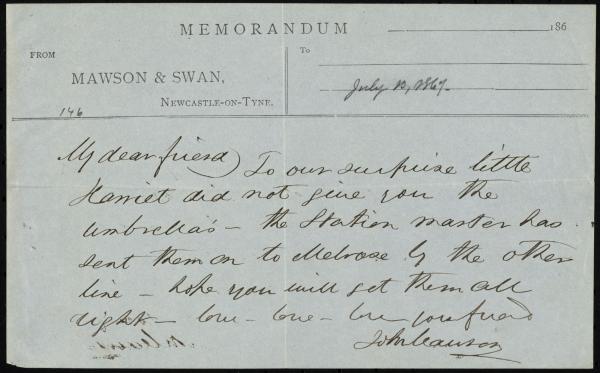 MEMORANDUM
186
FROM
To
MAWSON & SWAN,
NEWCASTLE-ON-TYNE.
July 10, 1867.
146
My dear friend) To our surprize little
Harriet did not give you the
umbrella's – the Station master has
sent them on to Melrose by the other
line – hope you will get them all
right – love – love – love your friend
John Mawson